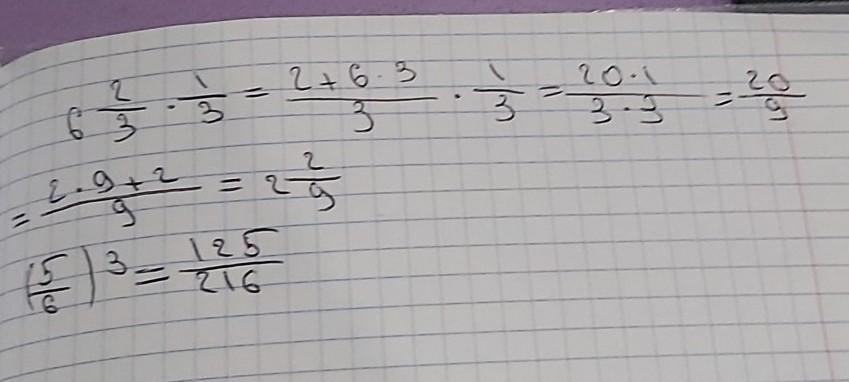 6 2/3 · 1/3 = (2+6·3)/3 · 1/3 = (20·1)/(3·3) = 20/9
= (2·9+2)/9 = 2 2/9
(5/6)^3 = 125/216